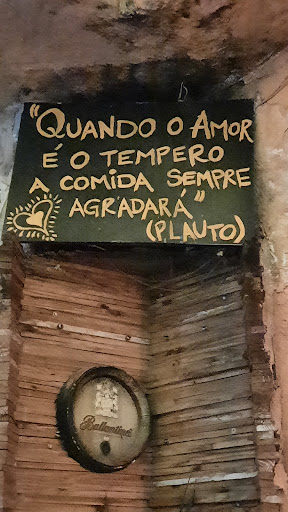 "QUANDO O AMOR
É O TEMPERO
A COMIDA SEMPRE
AGRADARÁ"
(PLAUTO)
Ballantine's